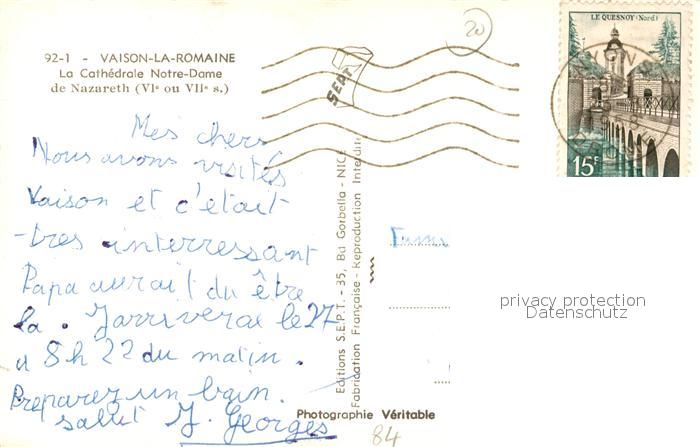 92-1 - VAISON-LA-ROMAINE
La Cathédrale Notre-Dame
de Nazareth (VIe ou VIIe s.)
20
LE QUESNOY (Nord)
15F
SEPT
Mes chers
Nous avons visités
Vaison et c'était
tres interressant
Papa aurait du être
la. J'arriverai le 27
a 8h 22 du matin.
Preparez un bain.
salut J. Georges
Editions S.E.P.T. - 35, Bd Gorbella - NICE
Fabrication Française - Reproduction Interdite
privacy protection
Datenschutz
Photographie Véritable
84